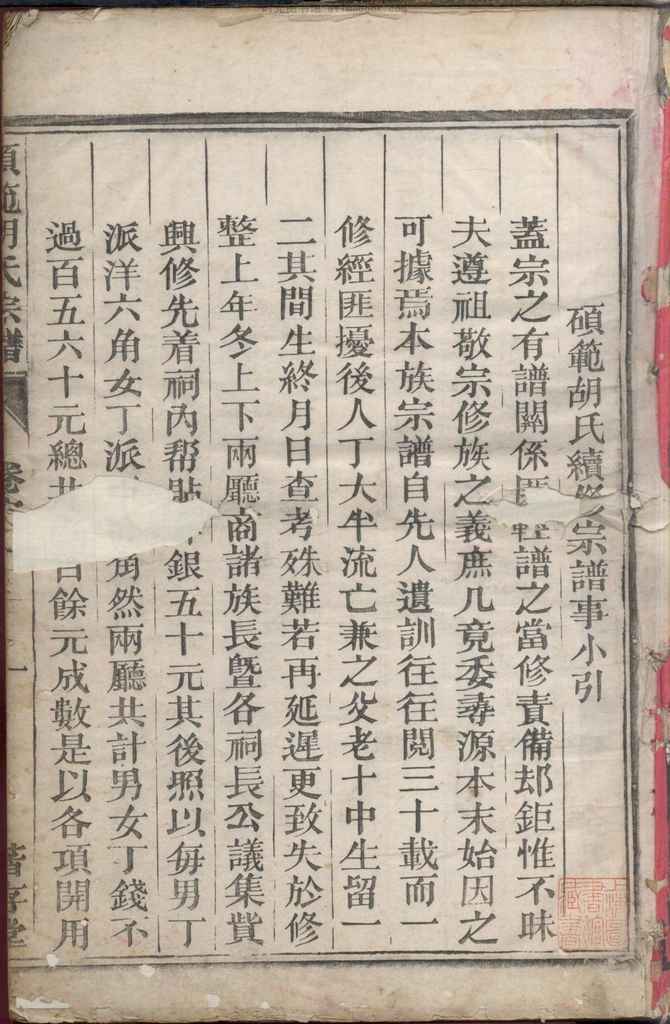 碩範胡氏續修宗譜事小引
蓋宗之有譜關係匪輕譜之當修責備却鉅惟不昧
夫遵祖敬宗修族之義庶几竟委尋源本末始因之
可據焉本族宗譜自先人遺訓往往閱三十載而一
修經匪擾後人丁大半流亡兼之父老十中生留一
二其間生終月日查考殊難若再延遲更致失於修
整上年冬上下兩廳商諸族長曁各祠長公議集貲
興修先着祠內帮貼銀五十元其後照以每男丁
派洋六角女丁派角然兩廳共計男女丁錢不
過百五六十元總共百餘元成數是以各項開用
碩範胡氏宗譜 卷 一